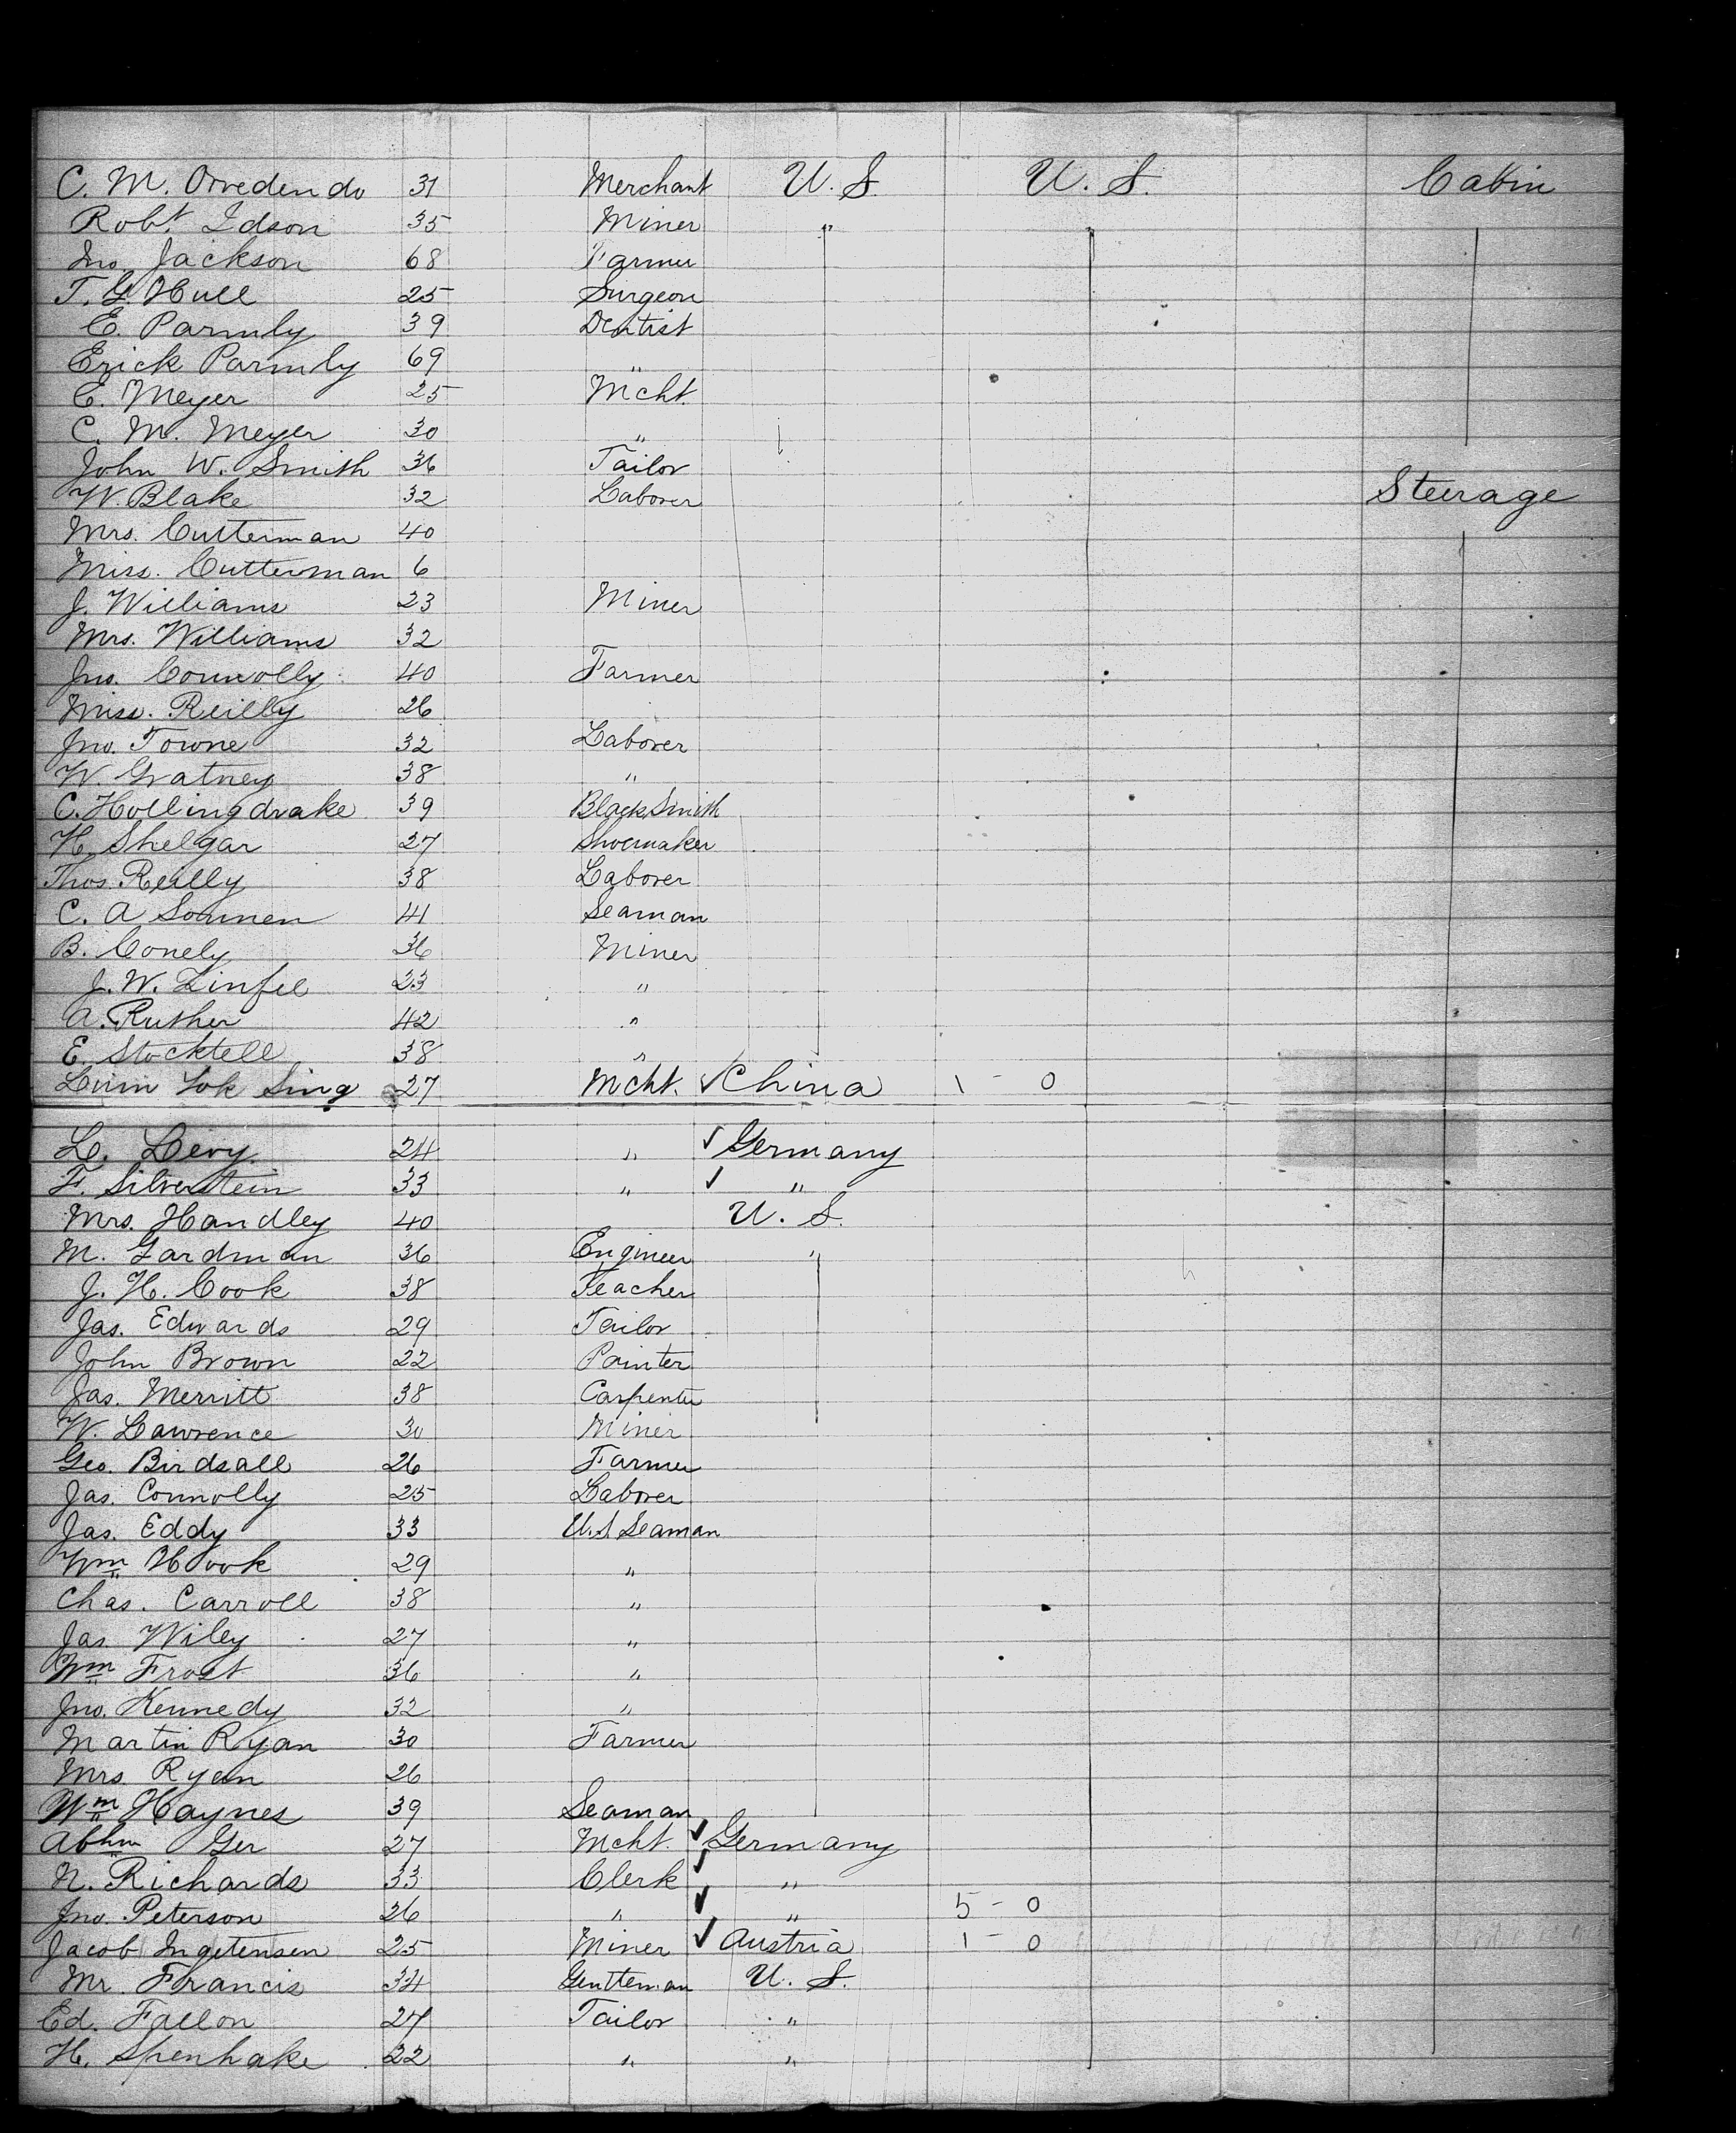 C. M. Orvedendo 31 Merchant U. S. U. S. Cabin
Robt. Idson 35 Miner "
Jno. Jackson 68 Farmer
T. G. Hull 25 Surgeon
E. Parmly 39 Dentist
Erick Parmly 69 "
E. Meyer 25 Mcht.
C. M. Meyer 30 "
John W. Smith 36 Tailor
W. Blake 32 Laborer Steerage
Mrs. Cutterman 40
Miss. Cutterman 6
J. Williams 23 Miner
Mrs. Williams 32
Jno. Connolly 40 Farmer
Miss. Reilly 26
Jno. Towne 32 Laborer
W. Gratney 38 "
C. Hollingdrake 39 BlackSmith
H. Shelgar 27 Shoemaker
Thos. Reilly 38 Laborer
C. A Sonnen 41 Seaman
B. Conely 36 Miner
J. W. Linfel 23 "
A. Ruther 42 "
E. Stocktell 38 "
Sing 27 Mcht. ✓ China 1 - 0
L. Levy 24 " ✓ Germany
F. Silverstein 33 " ✓ "
Mrs. Handley 40 U. S.
M. Gardman 36 Engineer "
J. H. Cook 38 Teacher
Jas. Edwards 29 Tailor
John Brown 22 Painter
Jas. Merritt 38 Carpenter
W. Lawrence 30 Miner
Geo. Birdsall 26 Farmer
Jas. Connolly 25 Laborer
Jas. Eddy 33 U.S Seaman
Wm Hook 29 "
Chas. Carroll 38 "
Jas. Wiley 27 "
Wm Frost 36 "
Jno. Kennedy 32 "
Martin Ryan 30 Farmer
Mrs. Ryan 26
Wm Haynes 39 Seaman
Abhm Ger 27 Mcht. ✓ Germany
N. Richards 33 Clerk ✓ "
Jno. Peterson 26 " ✓ " 5 - 0
Jacob Ingetensen 25 Miner ✓ Austria 1 - 0
Mr. Francis 34 Gentleman U. S.
Ed. Fallon 27 Tailor "
H. Spenhake 22 " "